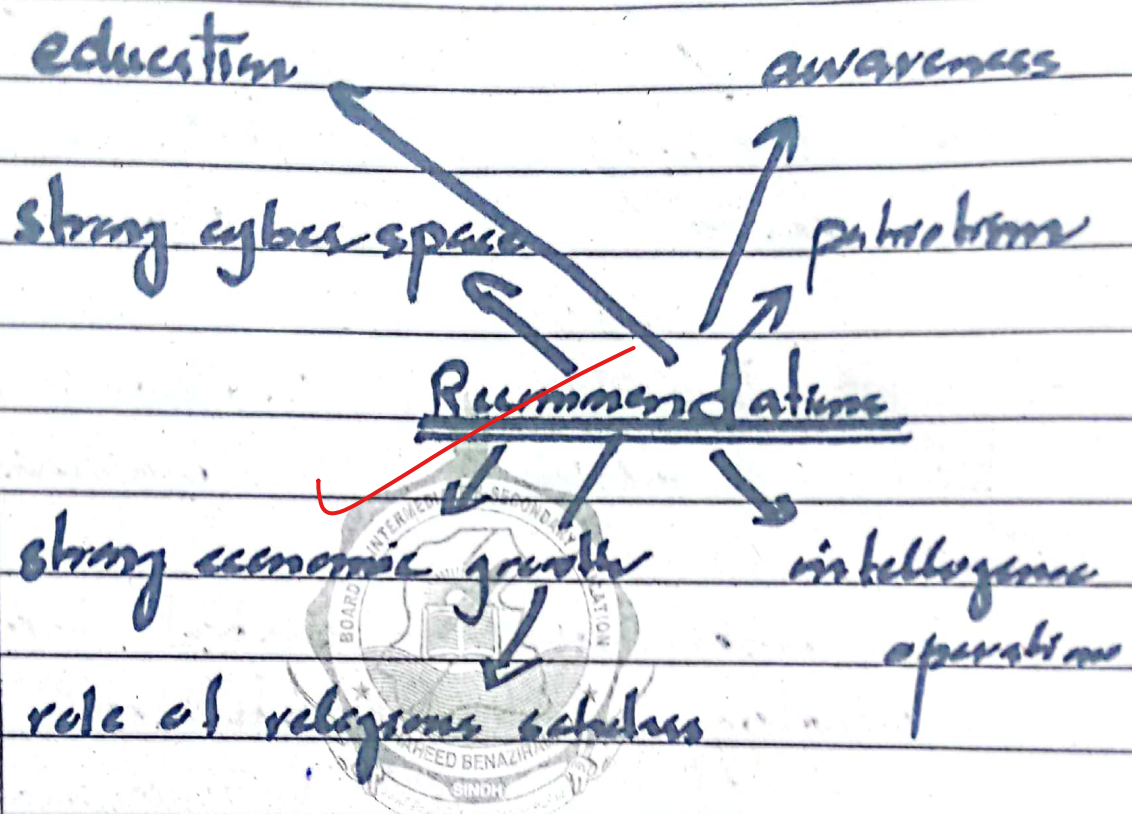 education
awareness
strong cyber space
patriotism
Recommendations
strong economic growth
intellogence
operations
role of relegious scholars
BOARD INTERMEDI SECONDARY
HEED BENAZIRA
SINDH